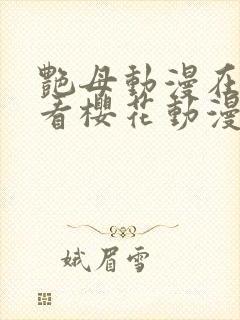 艷母動漫在
看櫻花動漫
娥眉雪